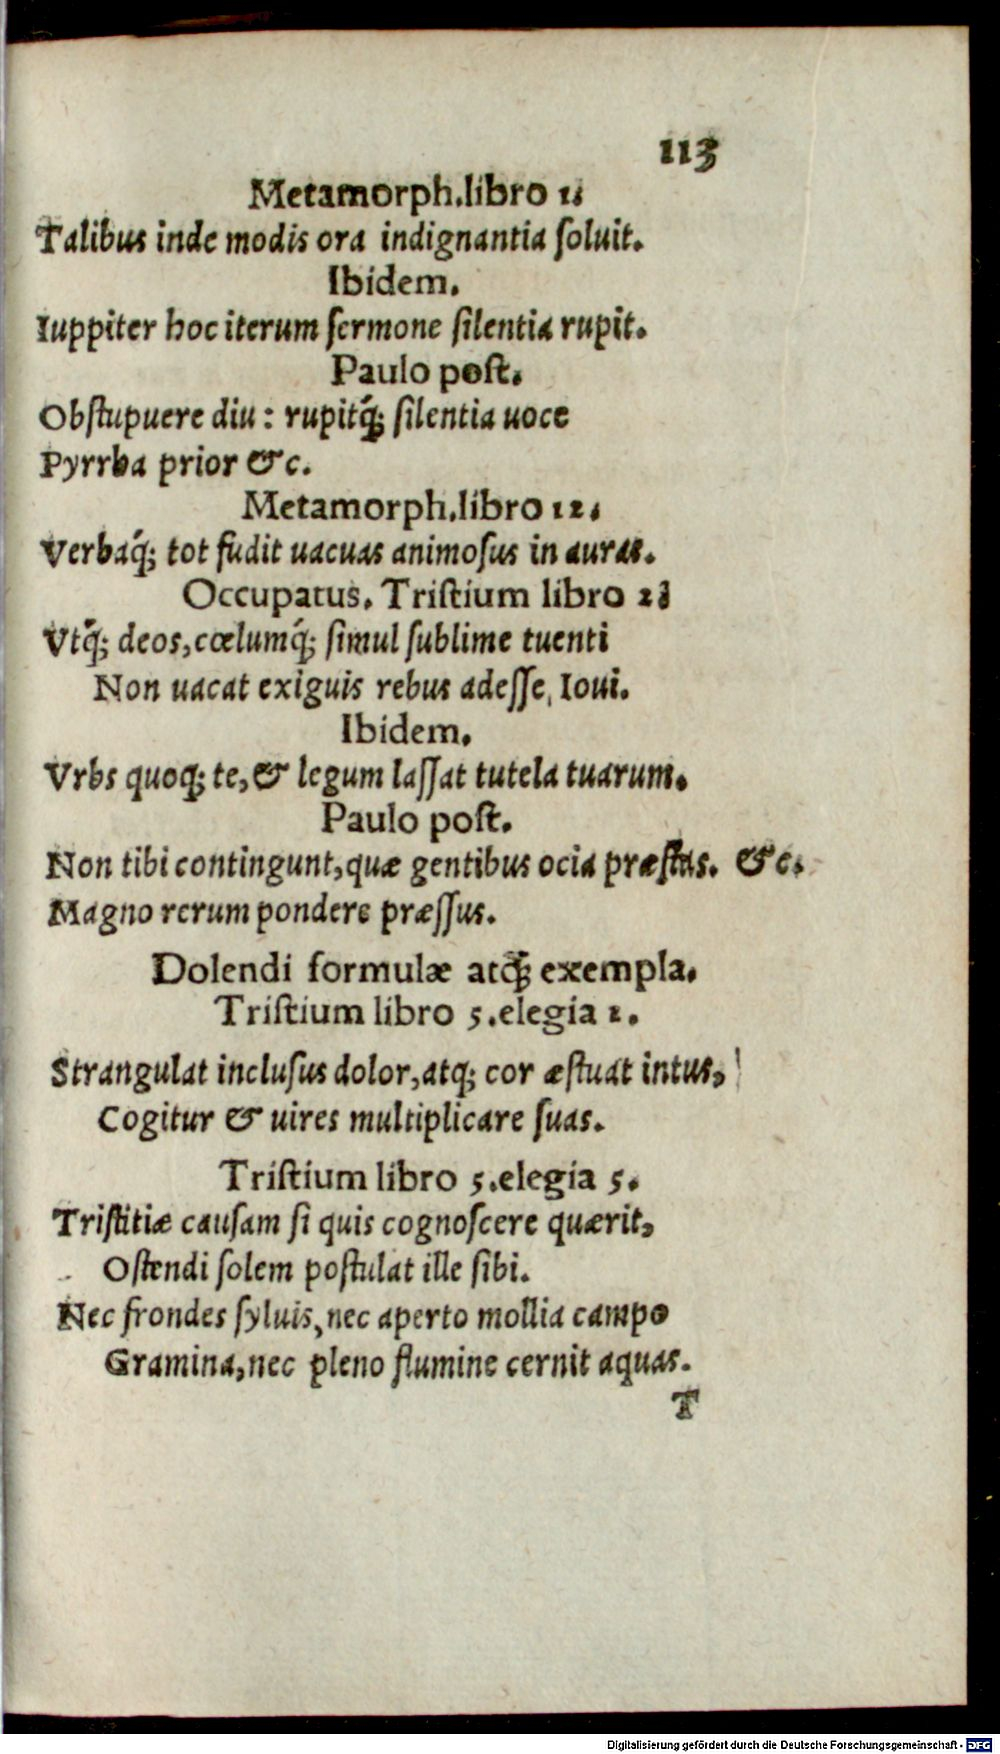 113
Metamorph.libro 1.
Talibus inde modis ora indignantia ſoluit.
Ibidem.
Iuppiter hoc iterum ſermone ſilentia rupit.
Paulo poſt.
Obſtupuere diu: rupitq́; ſilentia uoce
Pyrrha prior &c.
Metamorph.libro 12.
Verbaq́; tot fudit uacuas animoſus in auras.
Occupatus. Triſtium libro 2.
Vtq́; deos,cœlumq́; ſimul ſublime tuenti
Non uacat exiguis rebus adeſſe, Ioui.
Ibidem.
Vrbs quoq; te,& legum laſſat tutela tuarum.
Paulo poſt.
Non tibi contingunt,quæ gentibus ocia præſtas. &c.
Magno rerum pondere præſſus.
Dolendi formulæ atq́; exempla.
Triſtium libro 5.elegia 1.
Strangulat incluſus dolor,atq; cor æſtuat intus,
Cogitur & uires multiplicare ſuas.
Triſtium libro 5.elegia 5.
Triſtitiæ cauſam ſi quis cognoſcere quærit,
Oſtendi ſolem poſtulat ille ſibi.
Nec frondes ſyluis,nec aperto mollia campo
Gramina,nec pleno flumine cernit aquas.
T
Digitalisierung gefördert durch die Deutsche Forschungsgemeinschaft - DFG